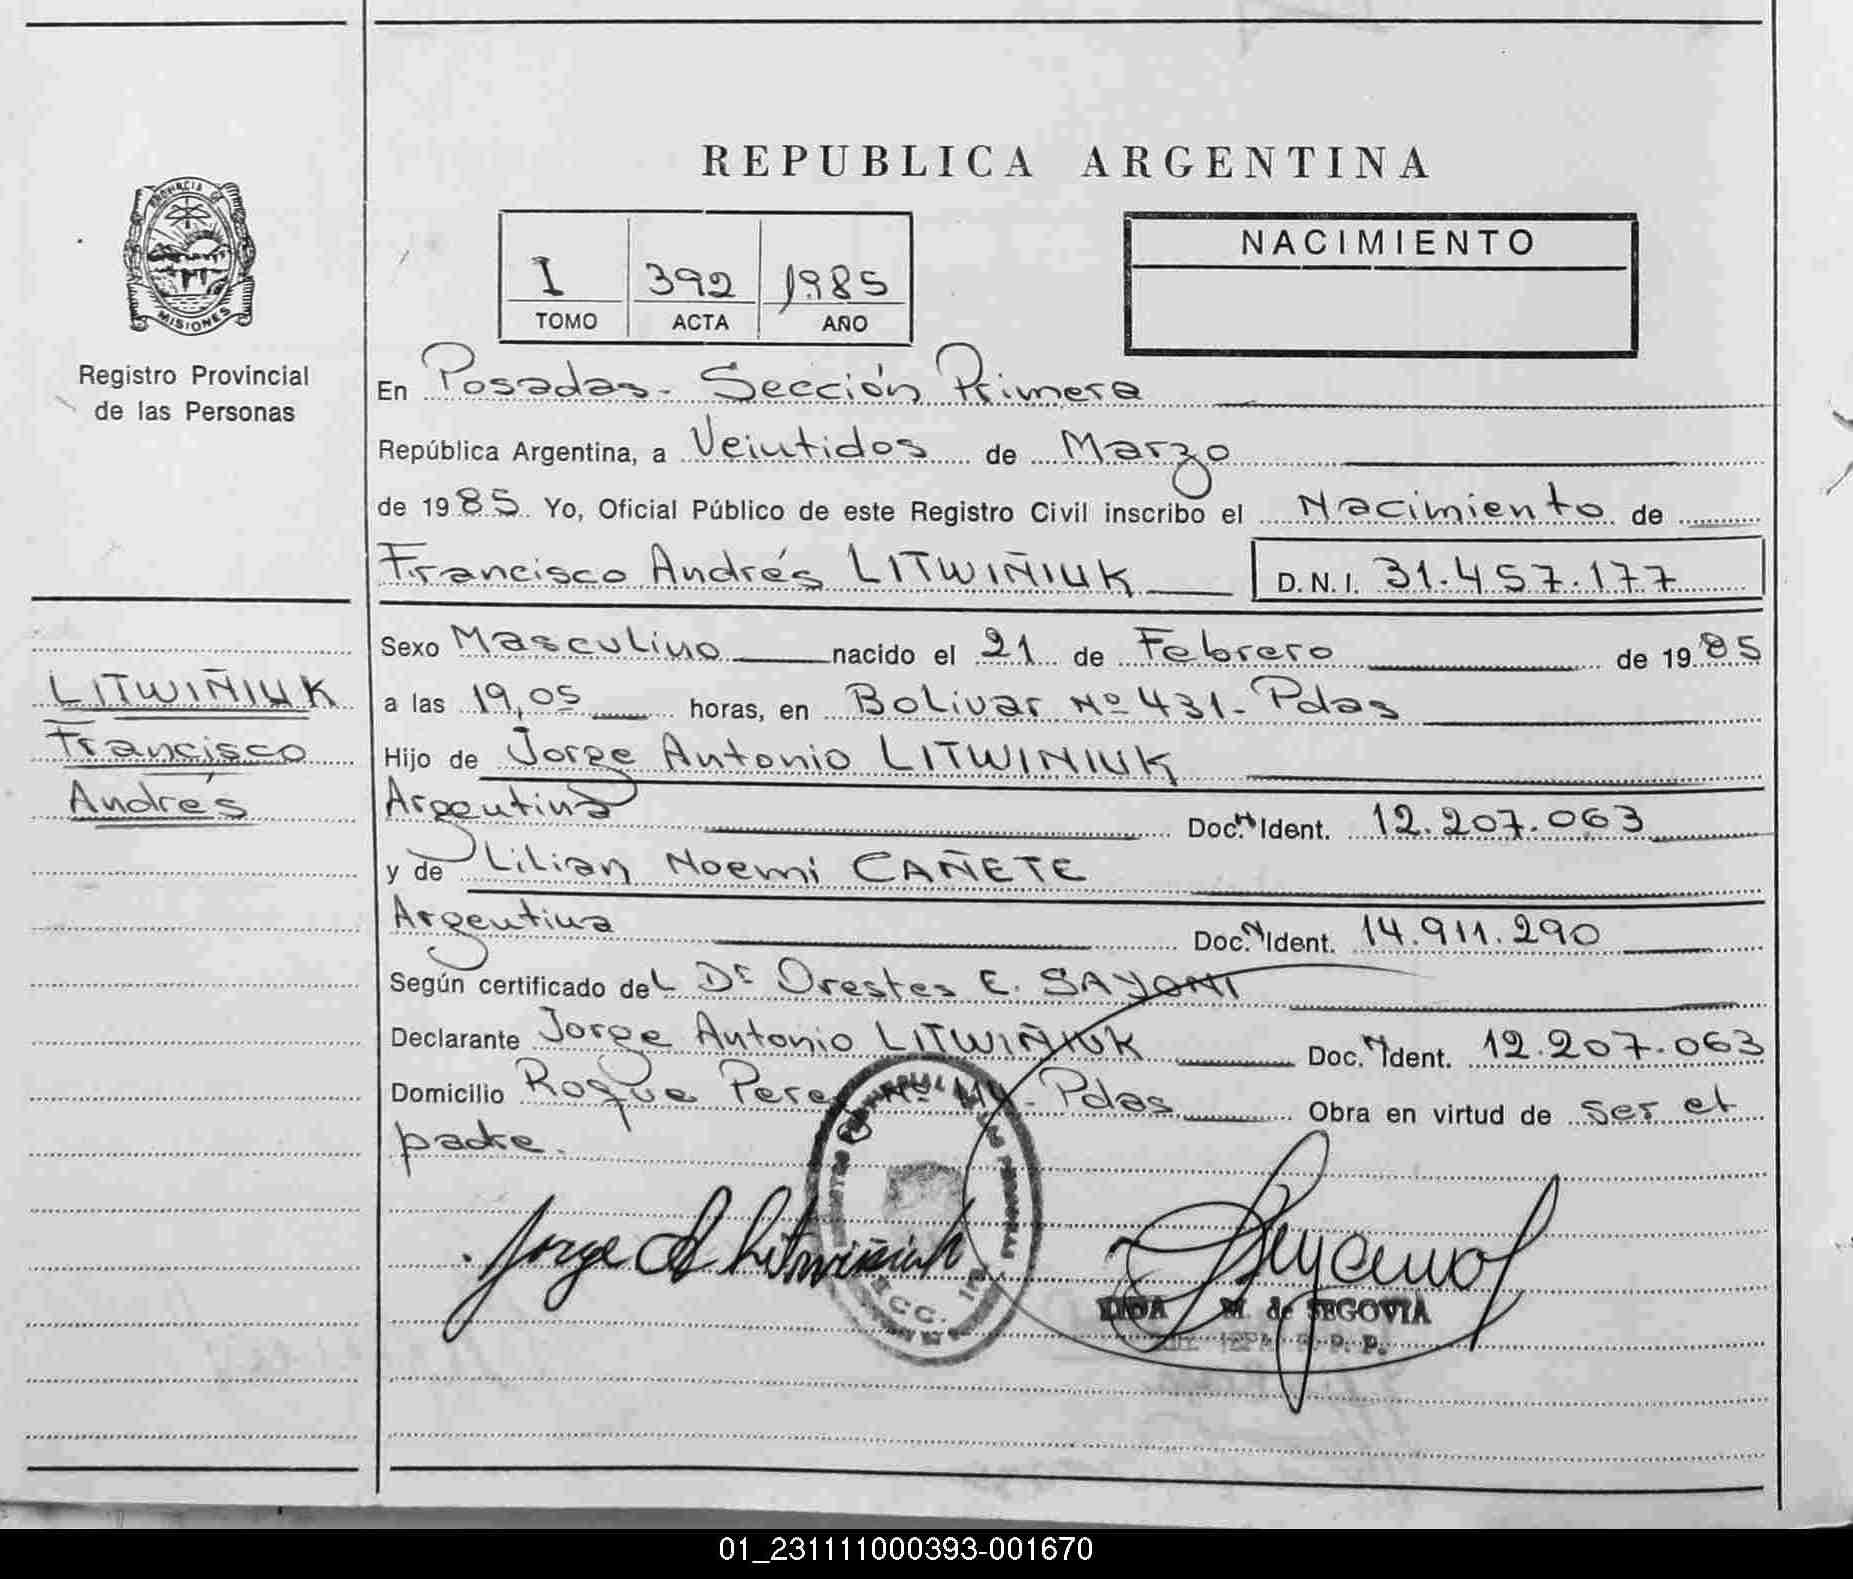 REPUBLICA ARGENTINA
PROVINCIA DE
MISIONES
Registro Provincial
de las Personas
I 392 1985
TOMO ACTA AÑO
NACIMIENTO
En Posadas - Sección Primera
República Argentina, a Veintidos de Marzo
de 1985 Yo, Oficial Público de este Registro Civil inscribo el Nacimiento de
Francisco Andrés LITWIÑIUK D.N.I. 31.457.177
LITWIÑIUK
Francisco
Andrés
Sexo Masculino nacido el 21 de Febrero de 1985
a las 19,05 horas, en Bolivar Nº 431 - Pdas
Hijo de Jorge Antonio LITWINIUK
Argentina Doc. N Ident. 12.207.063
y de Lilian Noemi CAÑETE
Argentina Doc. N Ident. 14.911.290
Según certificado del Dr Orestes E. SAYONI
Declarante Jorge Antonio LITWIÑIUK Doc. N Ident. 12.207.063
Domicilio Roque Perez Nº - Pdas Obra en virtud de ser el
padre.
Jorge A Litwiñiuk
M. de SEGOVIA
01_231111000393-001670